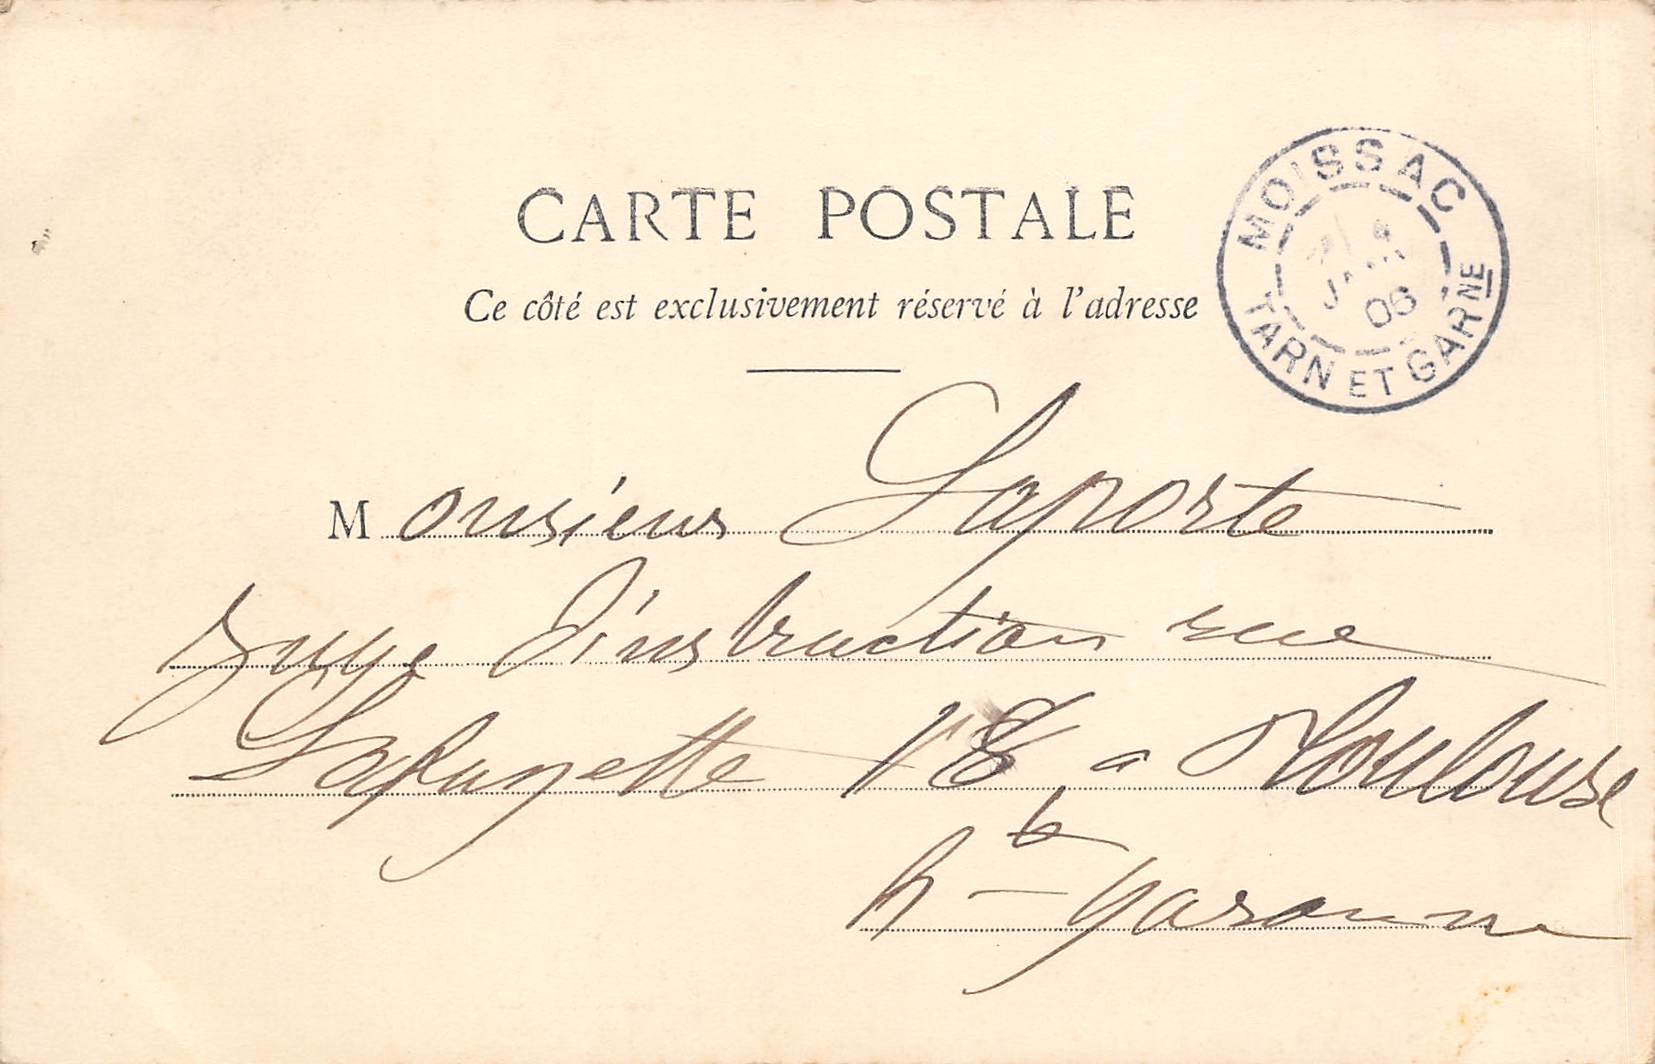 CARTE POSTALE
Ce côté est exclusivement réservé à l'adresse
MOISSAC
06
TARN ET GARNE
Monsieur Laporte
Juge d'instruction rue
Lafayette a Toulouse
hte Garonne